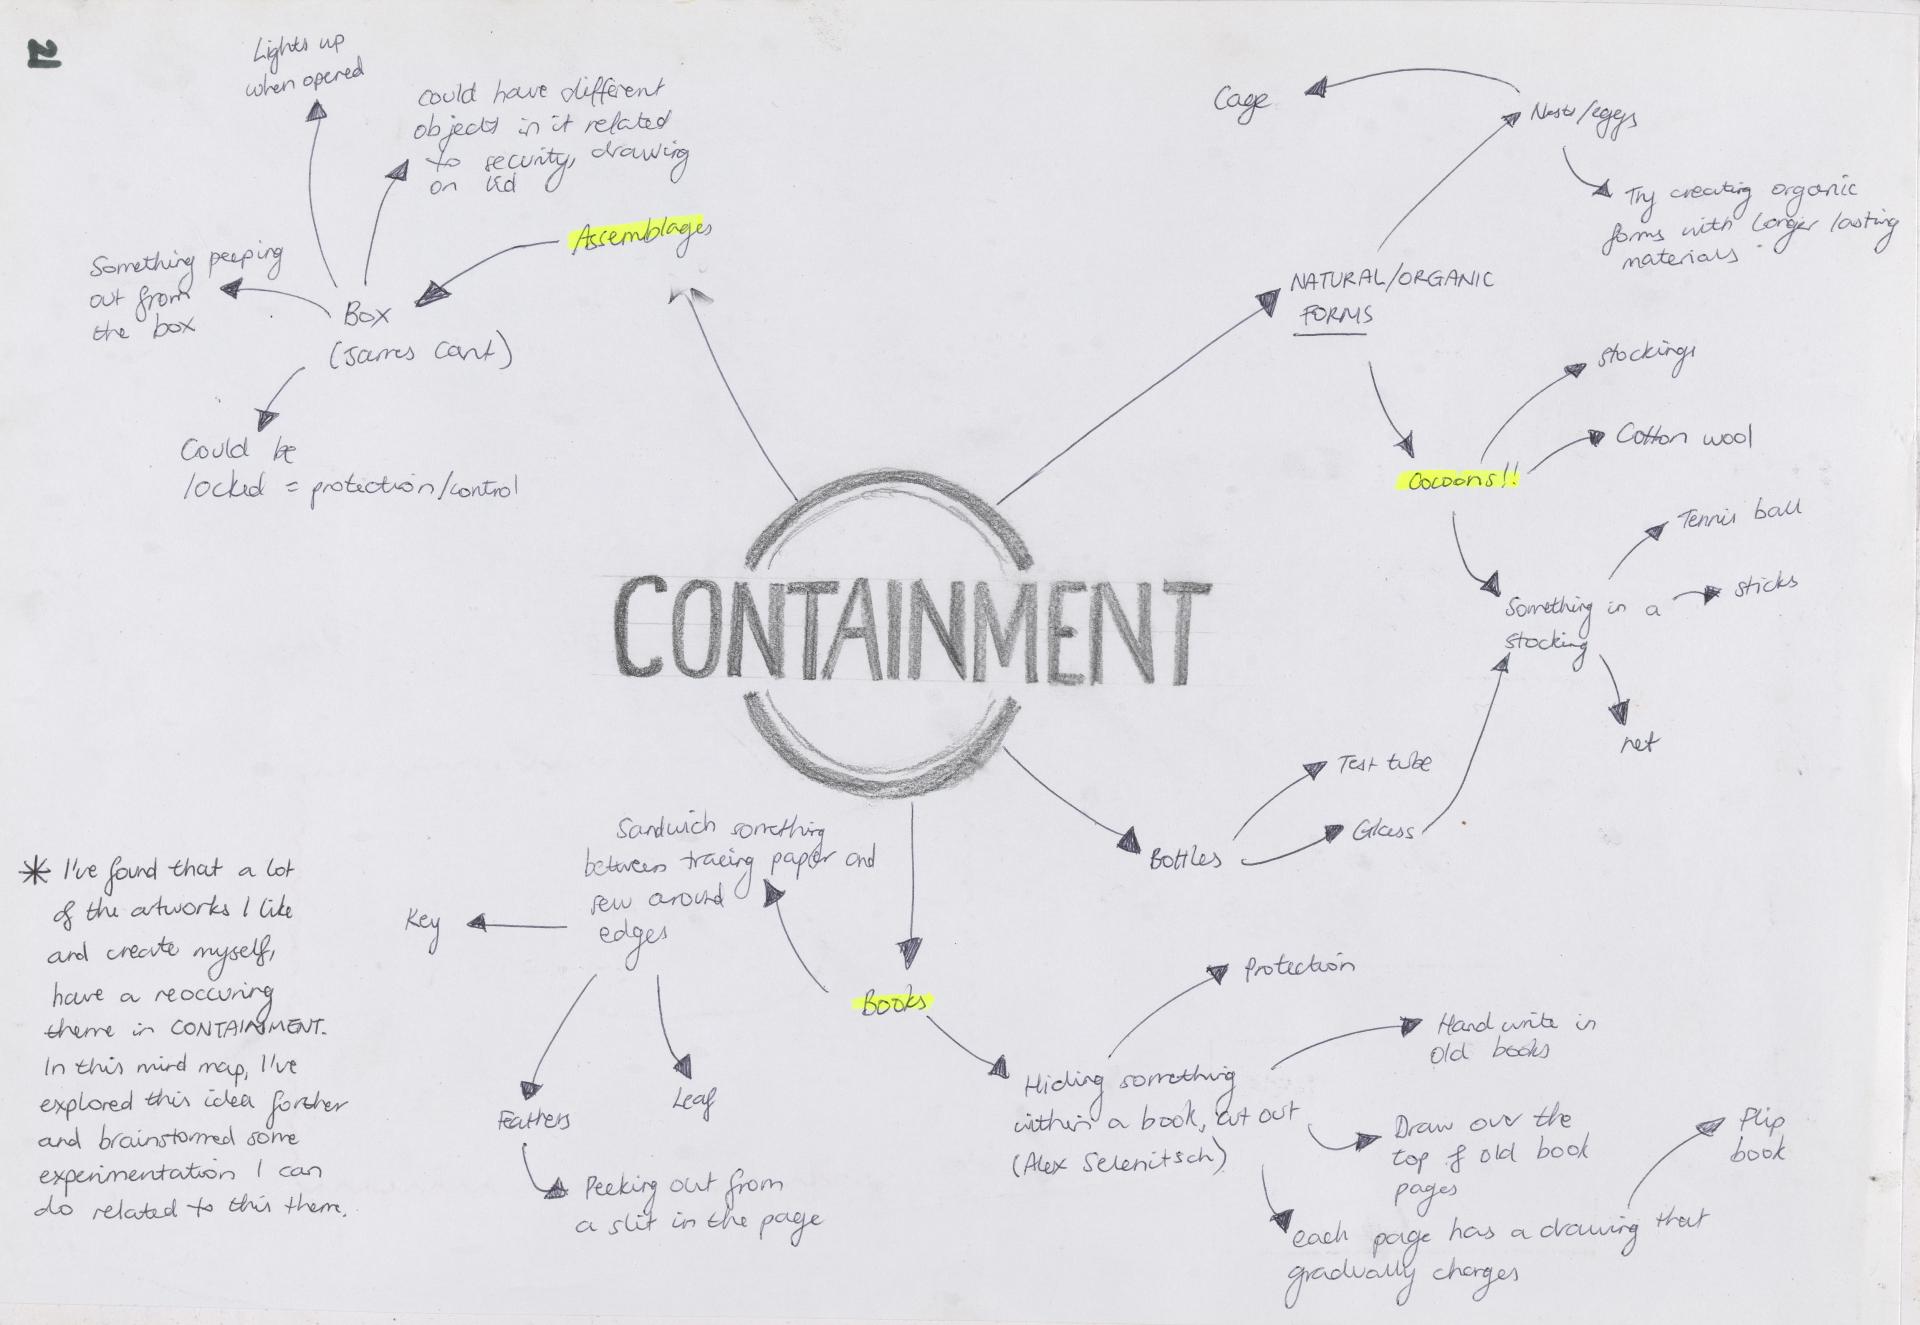 21
Lights up
when opened
could have different
objects in it related
to security, drawing
on lid
Assemblages
Something peeping
out from
the box
Box
(James Cant)
Could be
locked = protection/control
Cage
Nests/eggs
Try creating organic
forms with longer lasting
materials
NATURAL/ORGANIC
FORMS
stockings
Cotton wool
Cocoons!!
Tennis ball
Something in a
stocking
sticks
net
CONTAINMENT
Test tube
Glass
Bottles
Sandwich something
between tracing paper and
sew around
edges
Key
Feathers
Leaf
Peeking out from
a slit in the page
Books
Protection
Hiding something
within a book, cut out
(Alex Selenitsch)
Hand write in
old books
Draw over the
top of old book
pages
Flip
book
each page has a drawing that
gradually changes
* I've found that a lot
of the artworks I like
and create myself,
have a reoccuring
theme in CONTAINMENT.
In this mind map, I've
explored this idea further
and brainstormed some
experimentation I can
do related to this theme.